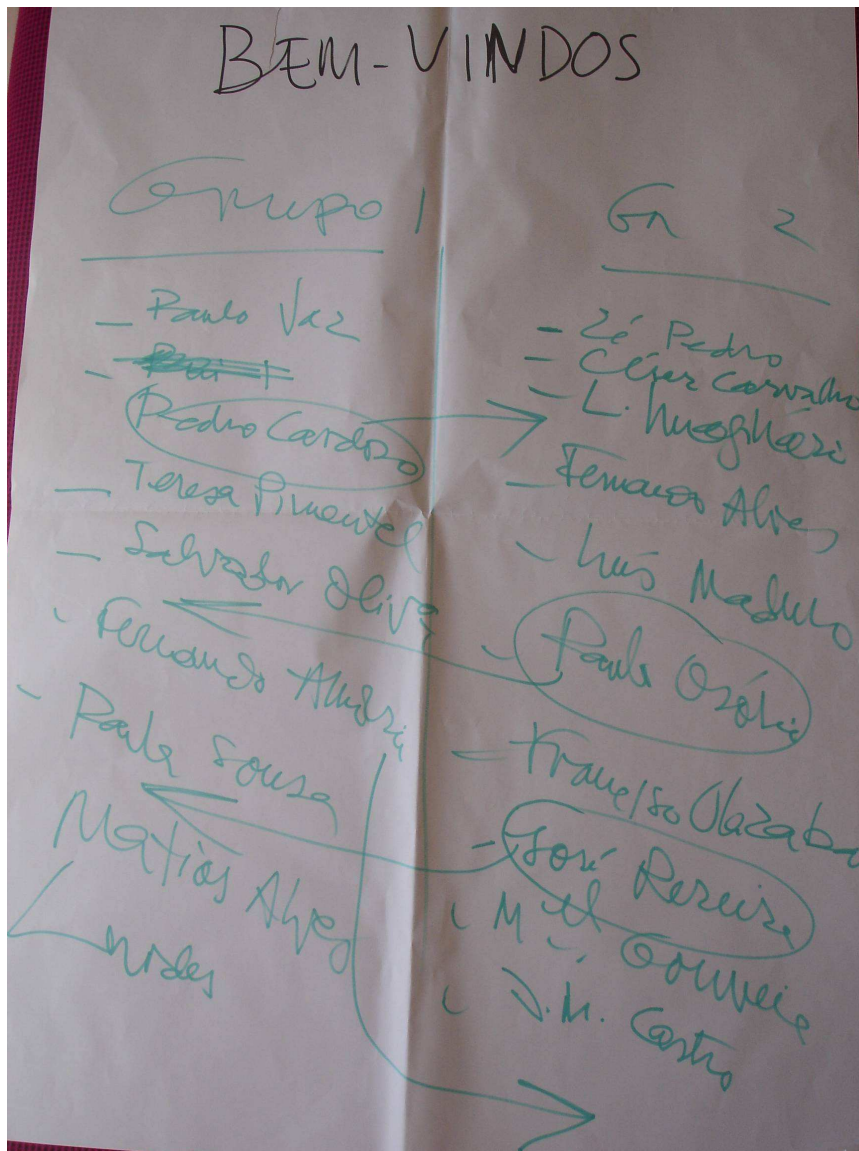 BEM-VINDOS
Grupo 1
Paulo Vaz
Pedro Cardoso
Teresa Pimentel
Salvador Oliva
Fernando Almeida
Paula Sousa
Matias Alves
Gr 2
Zé Pedro
César Carvalho
L.
Fernando Alves
Luís Maduro
Paula Osório
Francisco Olazaba
José Pereira
Gouveia
J.M. Castro